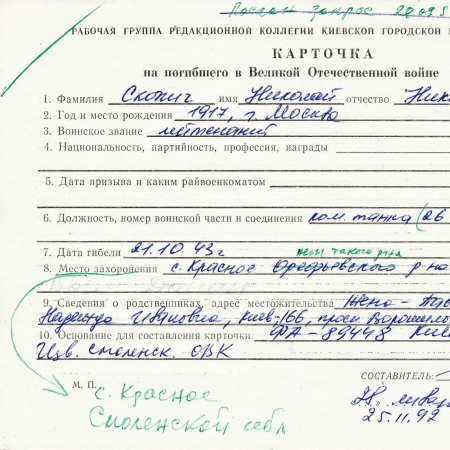 Послан запрос 20.09.9
РАБОЧАЯ ГРУППА РЕДАКЦИОННОЙ КОЛЛЕГИИ КИЕВСКОЙ ГОРОДСКОЙ
КАРТОЧКА
на погибшего в Великой Отечественной войне
1. Фамилия Скопич имя Николай отчество Ник
2. Год и место рождения 1917, г. Москва
3. Воинское звание лейтенант
4. Национальность, партийность, профессия, награды
5. Дата призыва и каким райвоенкоматом
6. Должность, номер воинской части и соединения ком. танка (26
7. Дата гибели 21.10.43г нет такого р-на
8. Место захоронения с. Красное р-на
9. Сведения о родственниках, адрес местожительства Жена –
Надежда Ивановна, Киев-166, просп.
10. Основание для составления карточки ФА-89448
Изв. Смоленск. ОВК
СОСТАВИТЕЛЬ:
М. П.
с. Красное
Смоленской обл
25.11.92